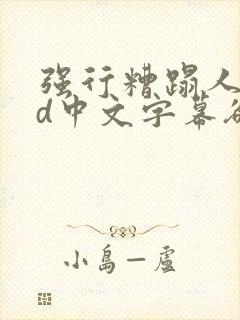 强行糟蹋人
d中文字幕欲
小島一盧